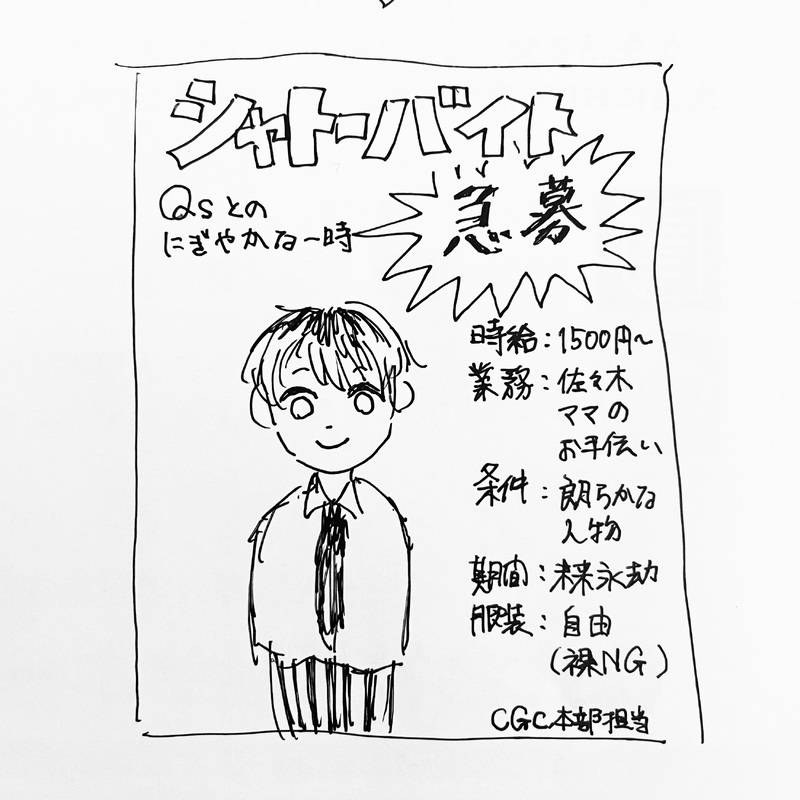 シャトーバイト
急募
Qsとの
にぎやかな一時
時給：1500円〜
業務：佐々木
ママの
お手伝い
条件：朗らかな
人物
期間：未来永劫
服装：自由
（裸NG）
CGC本部担当